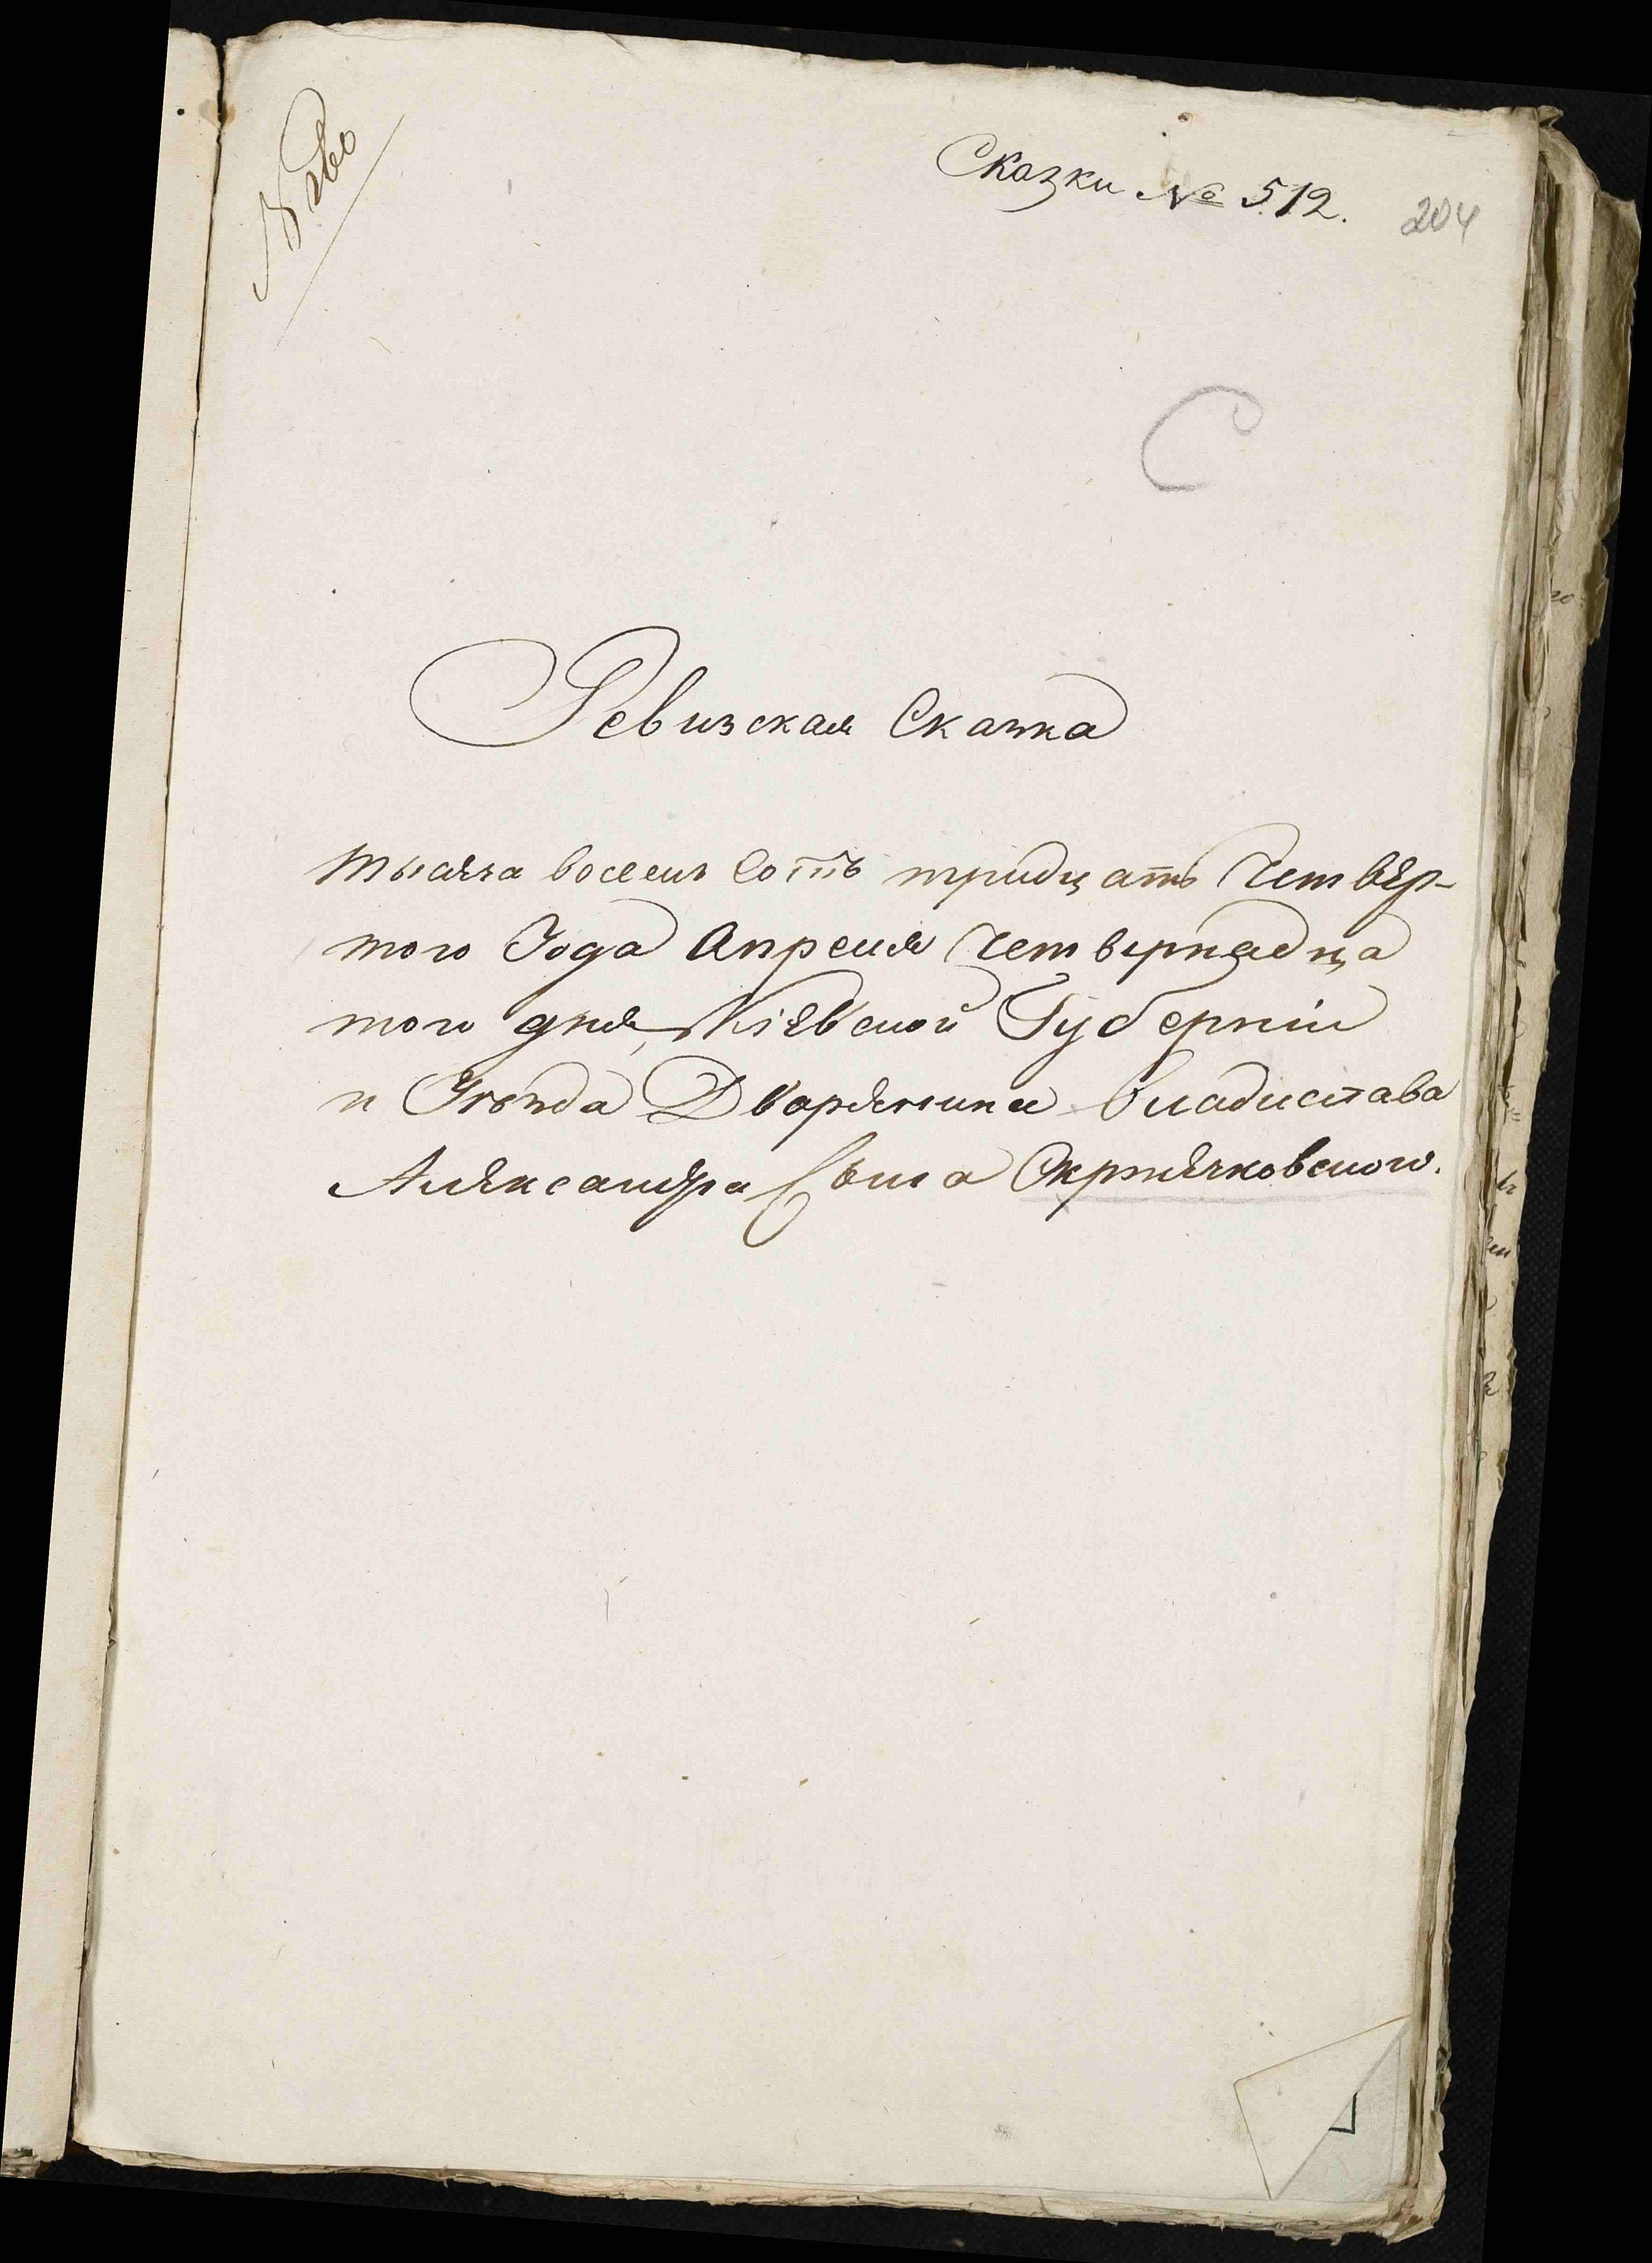 Сказки № 512.
204
С
Ревизская Сказка
тысяча восемь сотъ тридцать Четвер-
того Года Апреля Четвернадца
того дня Кіевской Губерніи
и Уѣзда Дворянина Владислава
Александра Сына